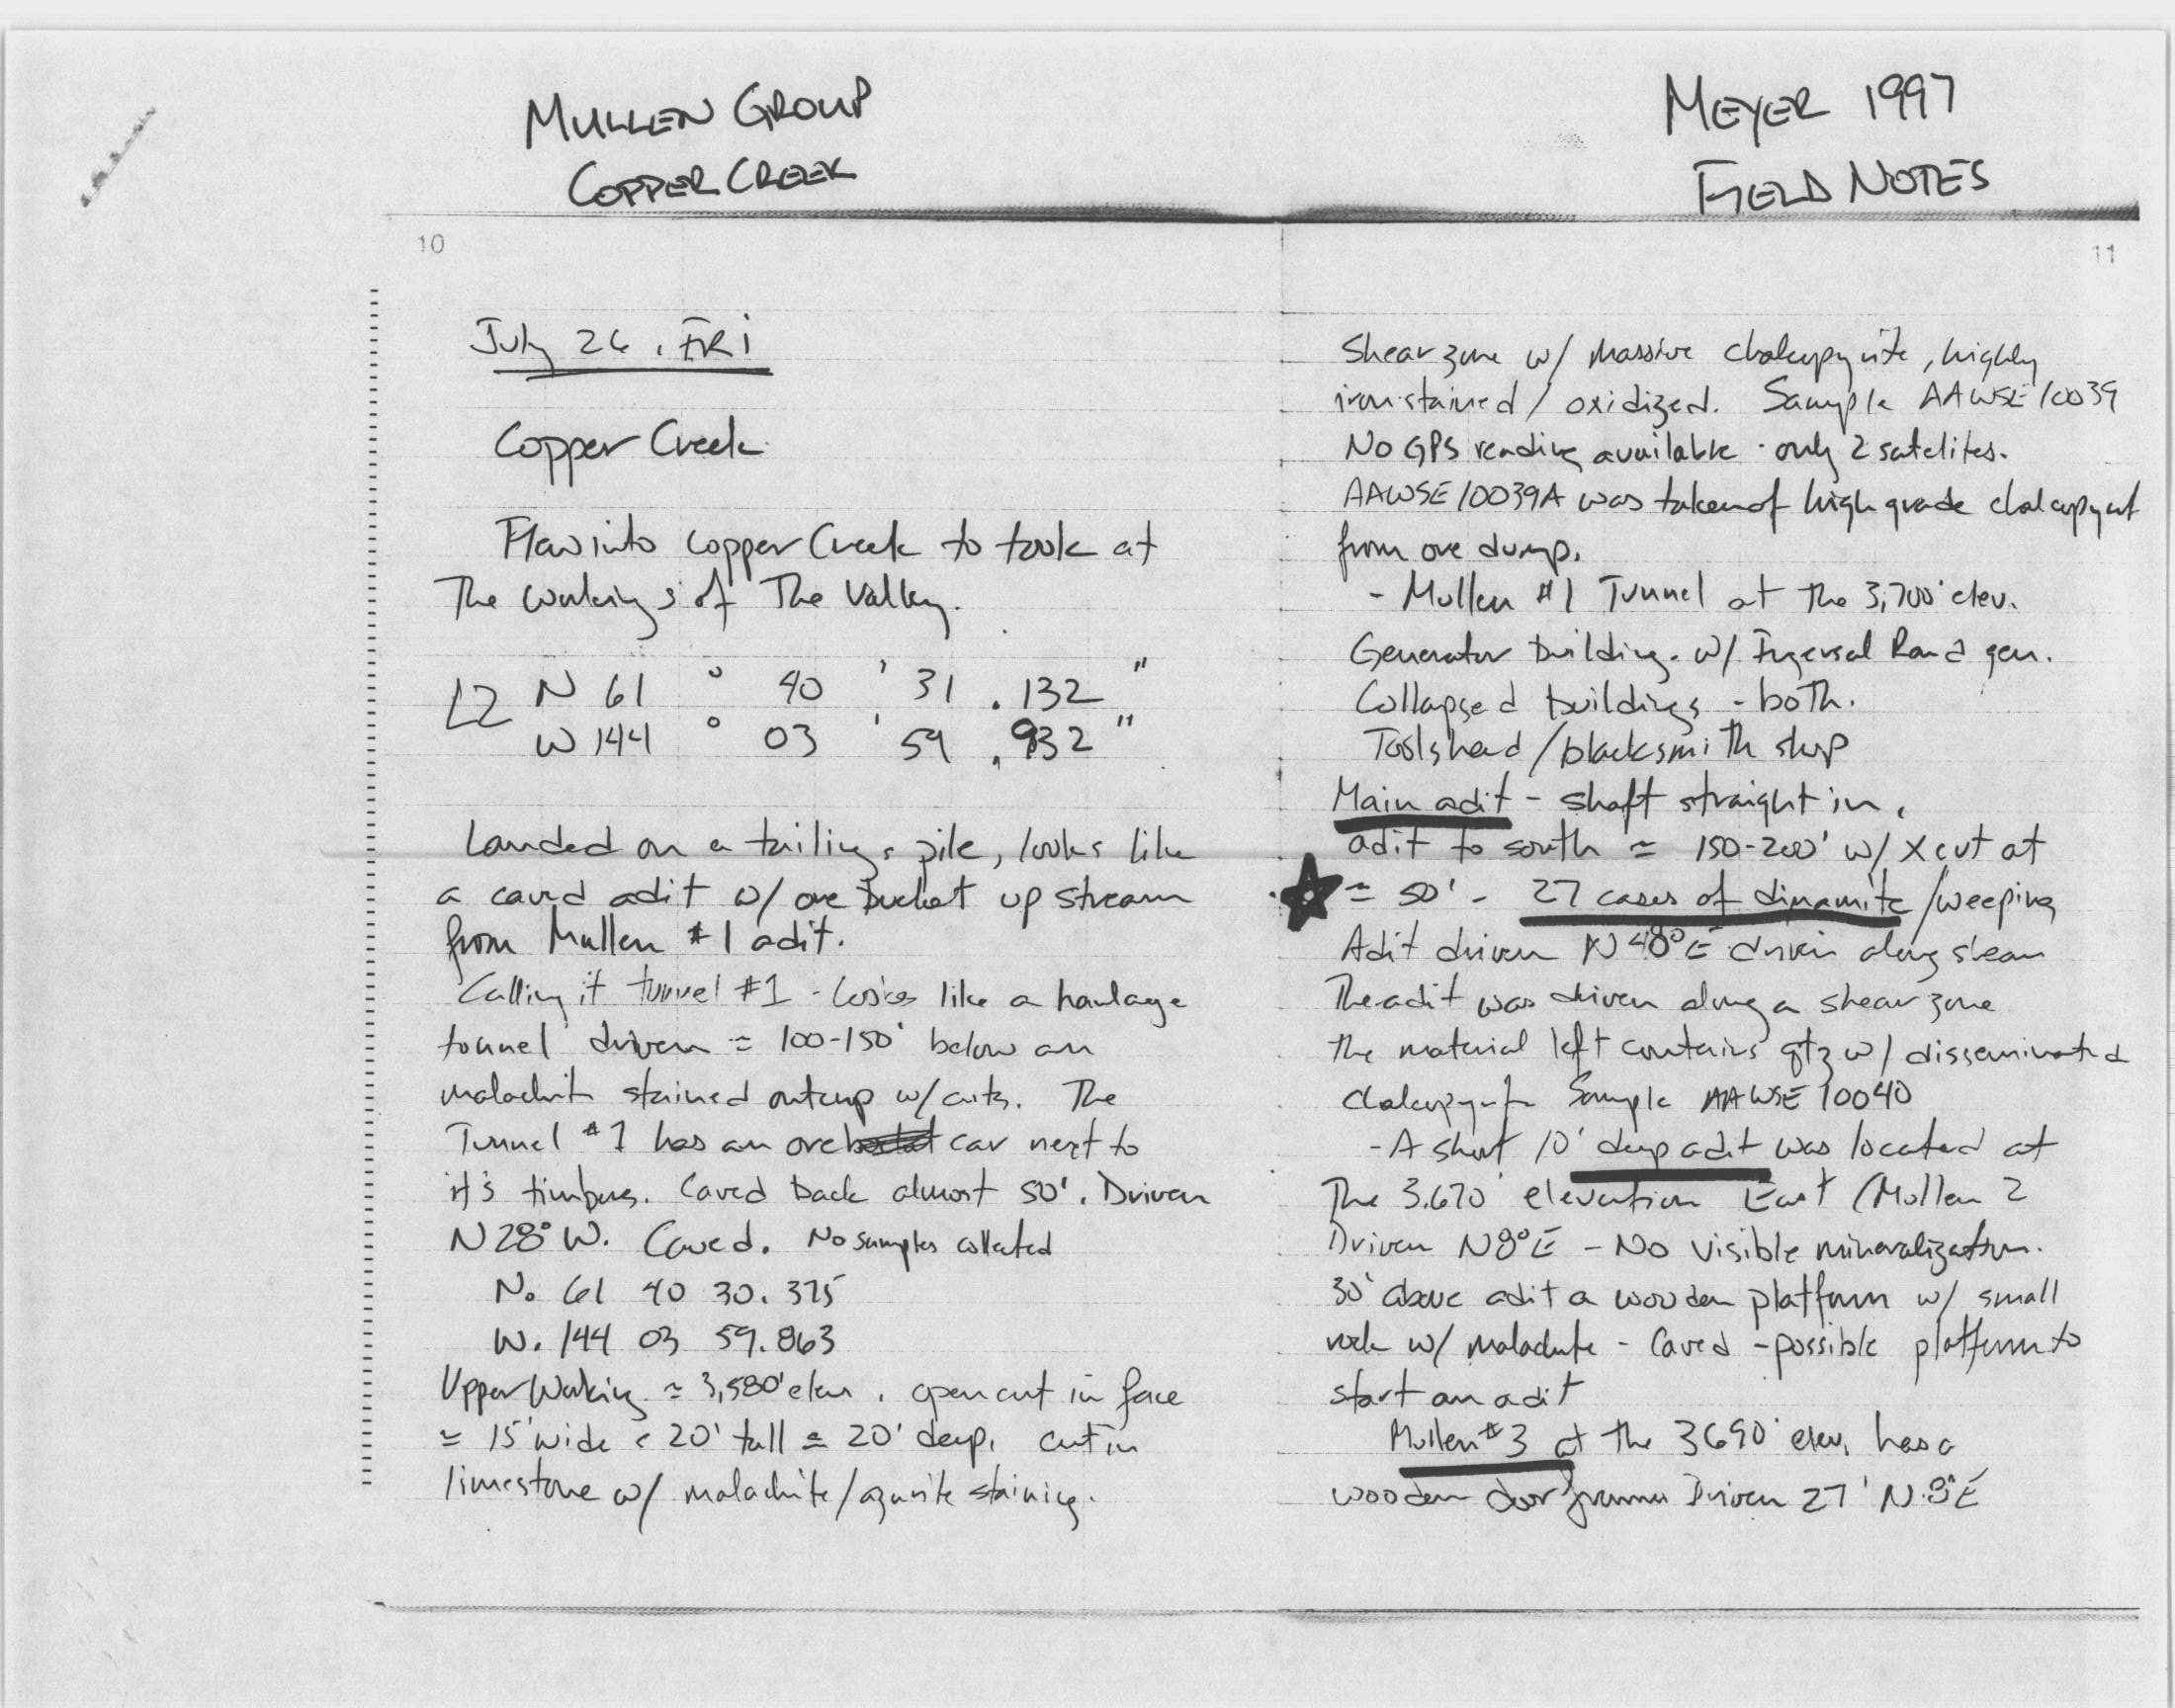 MULLEN GROUP
COPPER CREEK
MEYER 1997
FIELD NOTES
10
July 26, FRI
Copper Creek
Flew into Copper Creek to look at
The workings of The Valley.
LZ N 61 ° 40 ' 31 . 132 "
W 144 ° 03 ' 59 . 932 "
Landed on a tailings pile, looks like
a caved adit w/ ore bucket up stream
from Mullen #1 adit.
Calling it tunnel #1 - looks like a haulage
tunnel driven ≈ 100-150' below an
malachite stained outcrop w/ cuts. The
Tunnel #1 has an ore car next to
it's timbers. Caved back almost 50'. Driven
N 28° W. Caved. No samples collected
N. 61 40 30. 375
W. 144 03 59. 863
Upper Working ≈ 3,580' elev. open cut in face
≈ 15' wide 20' tall ≈ 20' deep. cut in
limestone w/ malachite/azurite staining.
11
Shear zone w/ massive chalcopyrite, highly
iron stained / oxidized. Sample AAWSE 10039
No GPS reading available - only 2 satelites.
AAWSE 10039A was taken of high grade chalcopyrit
from ore dump.
- Mullen #1 Tunnel at the 3,700' elev.
Generator building. w/ Ingersal Rand gen.
Collapsed buildings - both.
Toolshead / blacksmith shop
Main adit - shaft straight in,
adit to south ≈ 150-200' w/ Xcut at
≈ 50' - 27 cases of dinamite / weeping
Adit driven N 48° E driven along shear
The adit was driven along a shear zone
the material left contains qtz w/ disseminated
Chalcopyrite Sample AAWSE 10040
- A short 10' deep adit was located at
The 3,670' elevation East (Mullen 2
Driven N8°E - No visible mineralization.
30' above adit a wooden platform w/ small
rock w/ malachite - Caved - possible platform to
start an adit
Mullen #3 at the 3690' elev. has a
wooden door frame Driven 27' N 8° E